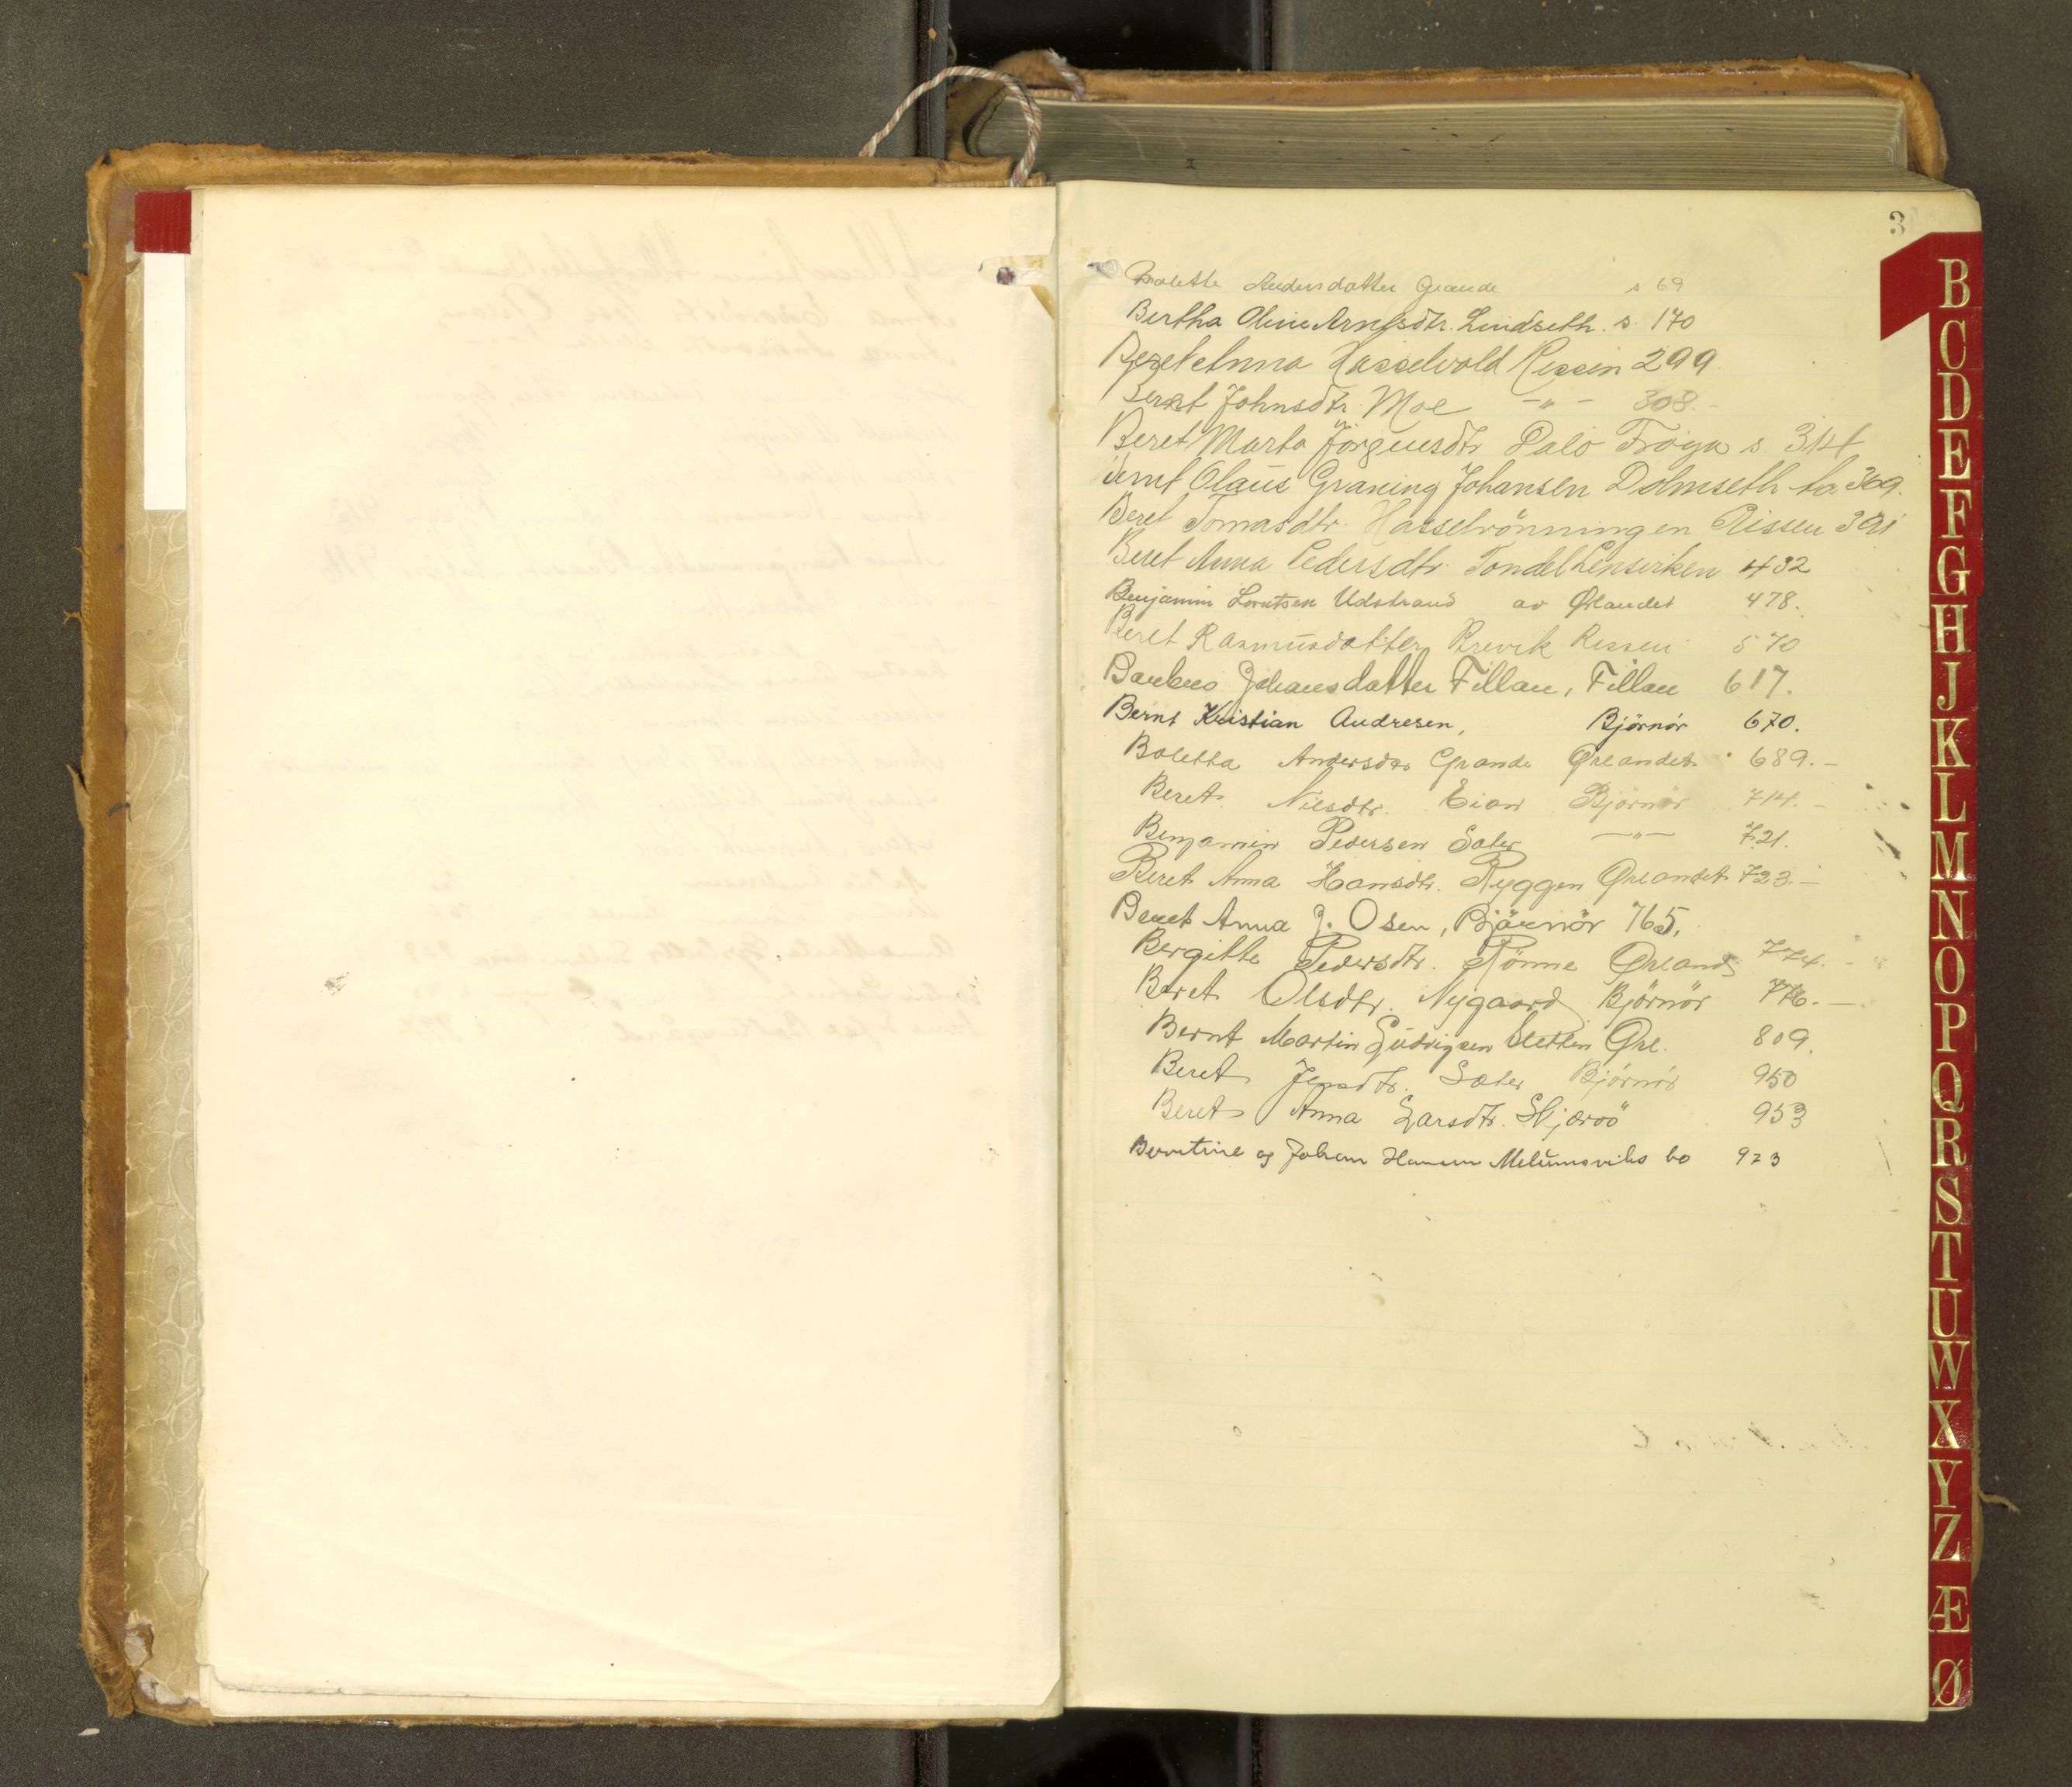 3
Bolette Andersdatter Grande s 69
Bertha Oline Arntsdtr. Lindseth. s. 170
Beret Anna Hasselvold Rissen 299
Beret Johnsdtr Moe -„- 308.-
Beret Marta Jörgensdtr Dalö Fröya s 314
Bernt Olaus Graning Johansen Dolmseth 369.
Beret Tomasdtr. Hasselrönningen Rissen 391
Beret Anna Pedersdtr. Tondel Lensviken 432
Benjamin Lorntsen Udstrand av Ørlandet 478.
Beret Rasmusdatter Brevik Rissen 570
Johansdatter Fillan, Fillan 617.
Bernt Kristian Andresen, Björnör 670.
Boletta Andersdtr Grande Ørlandet 689.-
Beret Nilsdtr. Eian Björnör 714.-
Benjamin Pedersen Sæter -„- 721.
Beret Anna Hansdtr. Ryggen Ørlandet 723.-
Beret Anna J. Osen, Bjørnör 765.
Bergitte Pedersdtr. Rönne Ørland 774.-
Beret Olsdtr. Nygaard Björnör 776.-
Bernt Martin Ludvigsen Sletten Ørl. 809.
Beret Jensdtr. Sæter Björnör 950
Beret Anna Larsdtr. 953
Berntine og Johan Hansen Melumsviks bo 973
B
C
D
E
F
G
H
J
K
L
M
N
O
P
Q
R
S
T
U
W
X
Y
Z
Æ
Ø